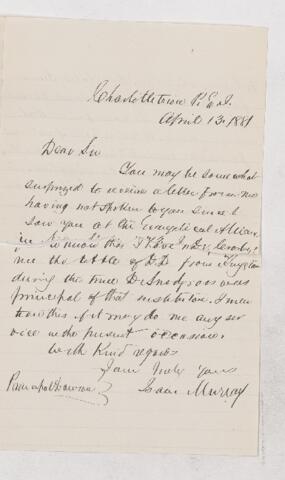 Charlottetown P. E. I.
April 13. 1881
Dear Sir
You may be somewhat
surprized to receive a letter from me
having not spoken to you since I
saw you at the Evangelical Allian
in
me the tittle of D.D from
during the time Dr Snodgrass was
principal of that institution. I men
tion this if it may do me any ser
vice in the present occasion.
With Kind regards
I am truly Yours
Isaac Murray
Principal Dawson